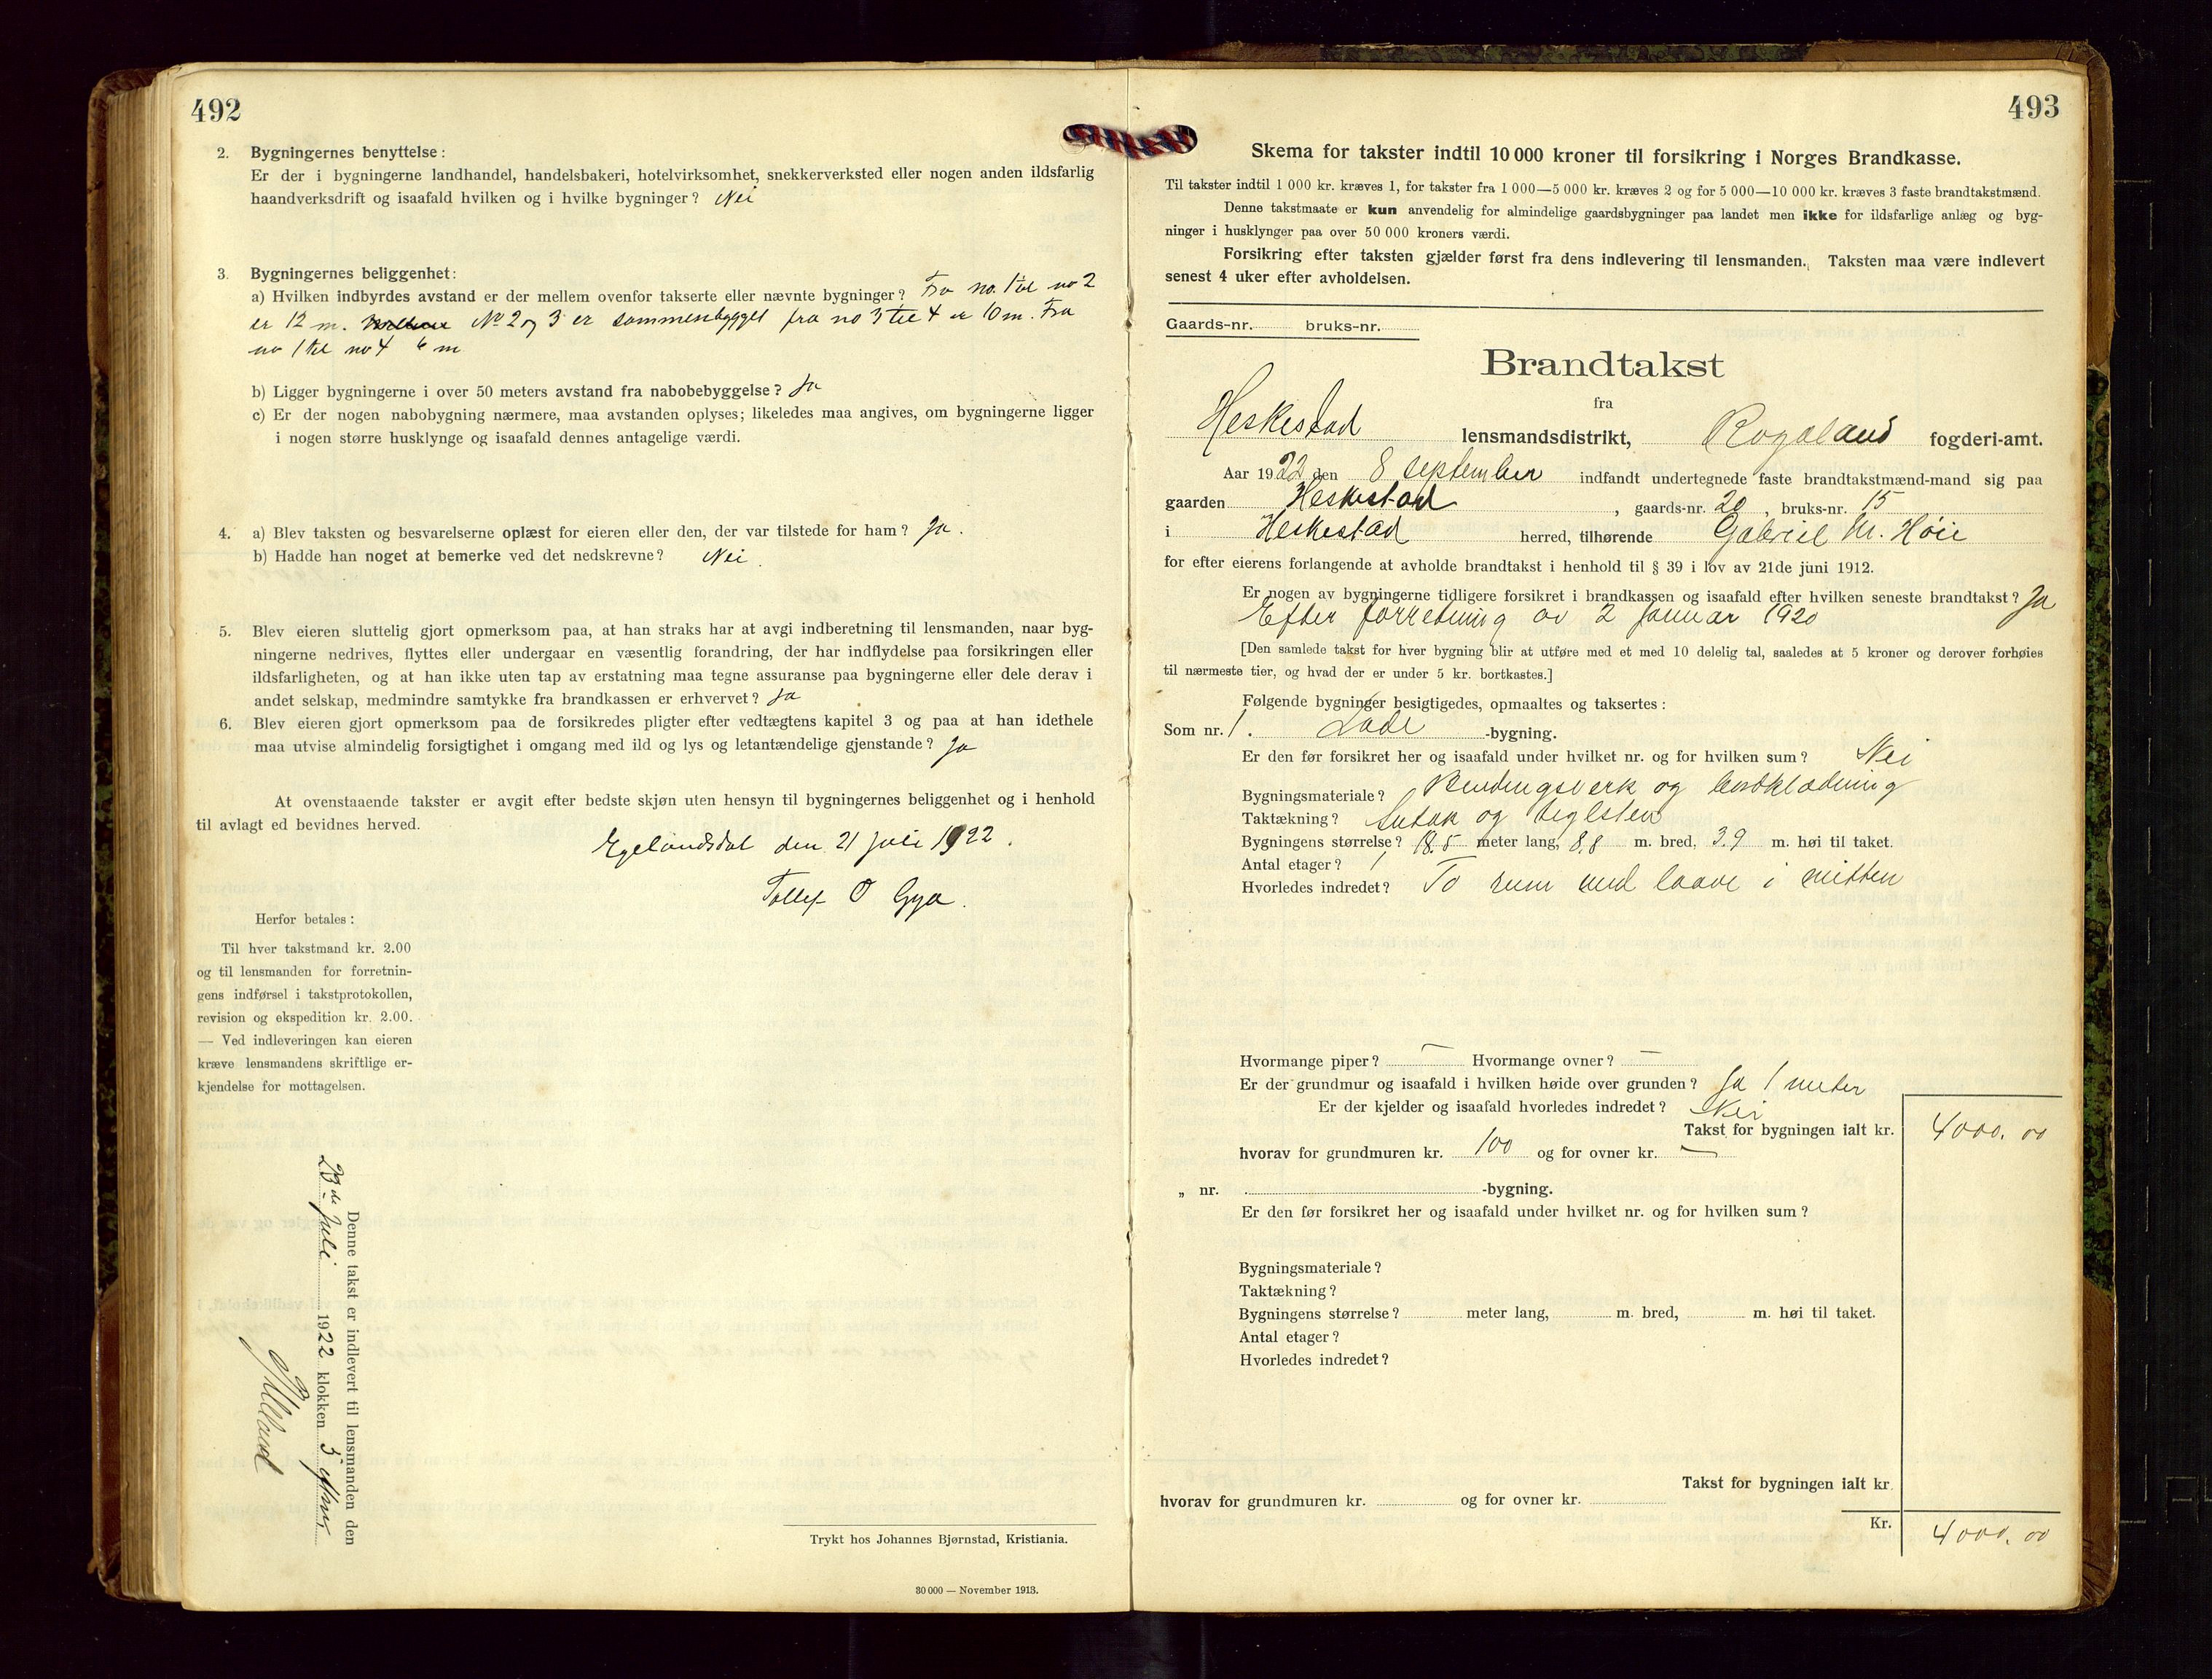 492
2. Bygningernes benyttelse:
Er der i bygningerne landhandel, handelsbakeri, hotelvirksomhet, snekkerverksted eller nogen anden ildsfarlig
haandverksdrift og isaafald hvilken og i hvilke bygninger? Nei
3. Bygningernes beliggenhet:
a) Hvilken indbyrdes avstand er der mellem ovenfor takserte eller nævnte bygninger? Fra no. 1 til no 2
er 12 m. No 2 og 3 er sammenbygget fra no 3 til 4 er 10 m. Fra
no 1 til no 4 6 m
b) Ligger bygningerne i over 50 meters avstand fra nabobebyggelse? Ja
c) Er der nogen nabobygning nærmere, maa avstanden oplyses; likeledes maa angives, om bygningerne ligger
i nogen større husklynge og isaafald dennes antagelige værdi.
4. a) Blev taksten og besvarelserne oplæst for eieren eller den, der var tilstede for ham? Ja.
b) Hadde han noget at bemerke ved det nedskrevne? Nei.
5. Blev eieren sluttelig gjort opmerksom paa, at han straks har at avgi indberetning til lensmanden, naar byg-
ningerne nedrives, flyttes eller undergaar en væsentlig forandring, der har indflydelse paa forsikringen eller
ildsfarligheten, og at han ikke uten tap av erstatning maa tegne assuranse paa bygningerne eller dele derav i
andet selskap, medmindre samtykke fra brandkassen er erhvervet? Ja
6. Blev eieren gjort opmerksom paa de forsikredes pligter efter vedtægtens kapitel 3 og paa at han idethele
maa utvise almindelig forsigtighet i omgang med ild og lys og letantændelige gjenstande? Ja
At ovenstaaende takster er avgit efter bedste skjøn uten hensyn til bygningernes beliggenhet og i henhold
til avlagt ed bevidnes herved.
Egelandsdal den 21 juli 1922.
Tollef O Gya.
Herfor betales:
Til hver takstmand kr. 2.00
og til lensmanden for forretnin-
gens indførsel i takstprotokollen,
revision og ekspedition kr. 2.00.
— Ved indleveringen kan eieren
kræve lensmandens skriftlige er-
kjendelse for mottagelsen.
Denne takst er indlevert til lensmanden den
23de juli 1922 klokken 5 efterm
Trykt hos Johannes Bjørnstad, Kristiania.
30 000 — November 1913.
493
Skema for takster indtil 10 000 kroner til forsikring i Norges Brandkasse.
Til takster indtil 1 000 kr. kræves 1, for takster fra 1 000—5 000 kr. kræves 2 og for 5 000—10 000 kr. kræves 3 faste brandtakstmænd.
Denne takstmaate er kun anvendelig for almindelige gaardsbygninger paa landet men ikke for ildsfarlige anlæg og byg-
ninger i husklynger paa over 50 000 kroners værdi.
Forsikring efter taksten gjælder først fra dens indlevering til lensmanden. Taksten maa være indlevert
senest 4 uker efter avholdelsen.
Gaards-nr. bruks-nr.
Brandtakst
fra
Heskestad lensmandsdistrikt, Rogaland fogderi-amt.
Aar 1922 den 8 september indfandt undertegnede faste brandtakstmænd-mand sig paa
gaarden Heskestad, gaards-nr. 20, bruks-nr. 15
i Heskestad herred, tilhørende Gabriel M. Høie
for efter eierens forlangende at avholde brandtakst i henhold til § 39 i lov av 21de juni 1912.
Er nogen av bygningerne tidligere forsikret i brandkassen og isaafald efter hvilken seneste brandtakst? Ja
Efter forretning av 2 januar 1920
[Den samlede takst for hver bygning blir at utføre med et med 10 delelig tal, saaledes at 5 kroner og derover forhøies
til nærmeste tier, og hvad der er under 5 kr. bortkastes.]
Følgende bygninger besigtigedes, opmaaltes og taksertes:
Som nr. 1. Lade -bygning.
Er den før forsikret her og isaafald under hvilket nr. og for hvilken sum? Nei
Bygningsmateriale? Bindingsverk og bordklædning
Taktækning? Sutak og teglsten
Bygningens størrelse? 18.5 meter lang, 8,8 m. bred, 3.9 m. høi til taket.
Antal etager? 1
Hvorledes indredet? To rum med laave i mitten
Hvormange piper? — Hvormange ovner? —
Er der grundmur og isaafald i hvilken høide over grunden? Ja 1 meter
Er der kjelder og isaafald hvorledes indredet? Nei
Takst for bygningen ialt kr. 4000.00
hvorav for grundmuren kr. 100 og for ovner kr. —
„ nr. -bygning.
Er den før forsikret her og isaafald under hvilket nr. og for hvilken sum?
Bygningsmateriale?
Taktækning?
Bygningens størrelse? meter lang, m. bred, m. høi til taket.
Antal etager?
Hvorledes indredet?
Takst for bygningen ialt kr.
hvorav for grundmuren kr. og for ovner kr.
Kr. 4000.00